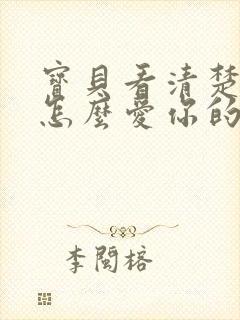 寶貝看清楚
怎麼愛你的
李閩榕